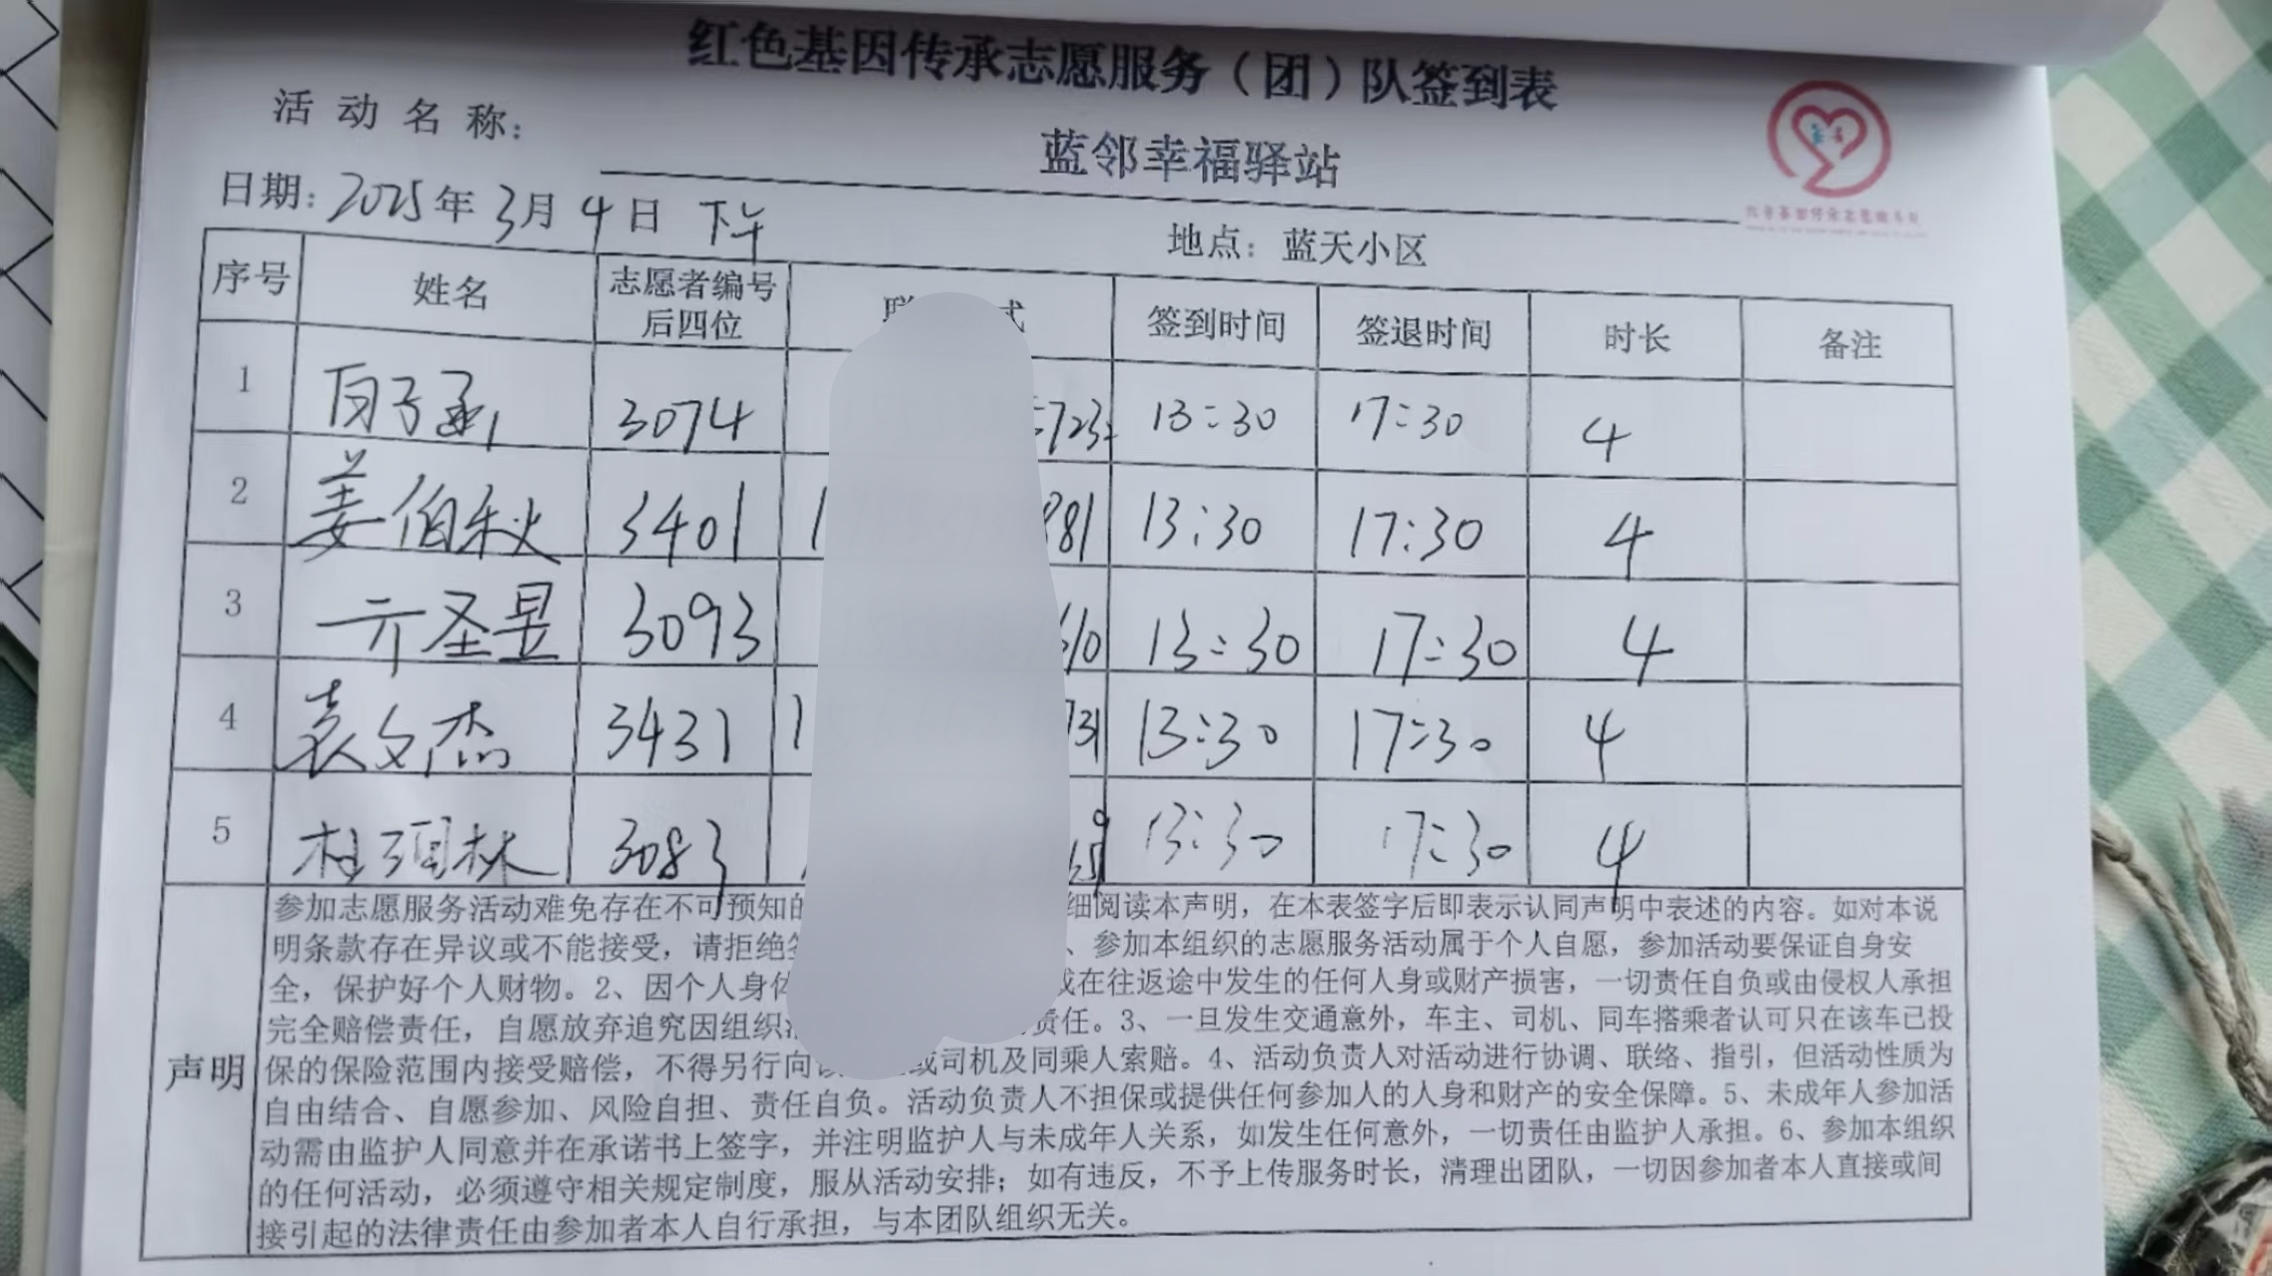 红色基因传承志愿服务（团）队签到表
活动名称：
蓝邻幸福驿站
日期：2025年3月4日 下午
地点：蓝天小区
序号 姓名 志愿者编号后四位 签到时间 签退时间 时长 备注
1 3074 13:30 17:30 4
2 姜伯秋 3401 881 13:30 17:30 4
3 亓圣昱 3093 610 13:30 17:30 4
4 袁文杰 3431 731 13:30 17:30 4
5 3083 13:30 17:30 4
声明
参加志愿服务活动难免存在不可预知的 细阅读本声明，在本表签字后即表示认同声明中表述的内容。如对本说
明条款存在异议或不能接受，请拒绝 、参加本组织的志愿服务活动属于个人自愿，参加活动要保证自身安
全，保护好个人财物。2、因个人身体 或在往返途中发生的任何人身或财产损害，一切责任自负或由侵权人承担
完全赔偿责任，自愿放弃追究因组织 责任。3、一旦发生交通意外，车主、司机、同车搭乘者认可只在该车已投
保的保险范围内接受赔偿，不得另行向该 或司机及同乘人索赔。4、活动负责人对活动进行协调、联络、指引，但活动性质为
自由结合、自愿参加、风险自担、责任自负。活动负责人不担保或提供任何参加人的人身和财产的安全保障。5、未成年人参加活
动需由监护人同意并在承诺书上签字，并注明监护人与未成年人关系，如发生任何意外，一切责任由监护人承担。6、参加本组织
的任何活动，必须遵守相关规定制度，服从活动安排；如有违反，不予上传服务时长，清理出团队，一切因参加者本人直接或间
接引起的法律责任由参加者本人自行承担，与本团队组织无关。